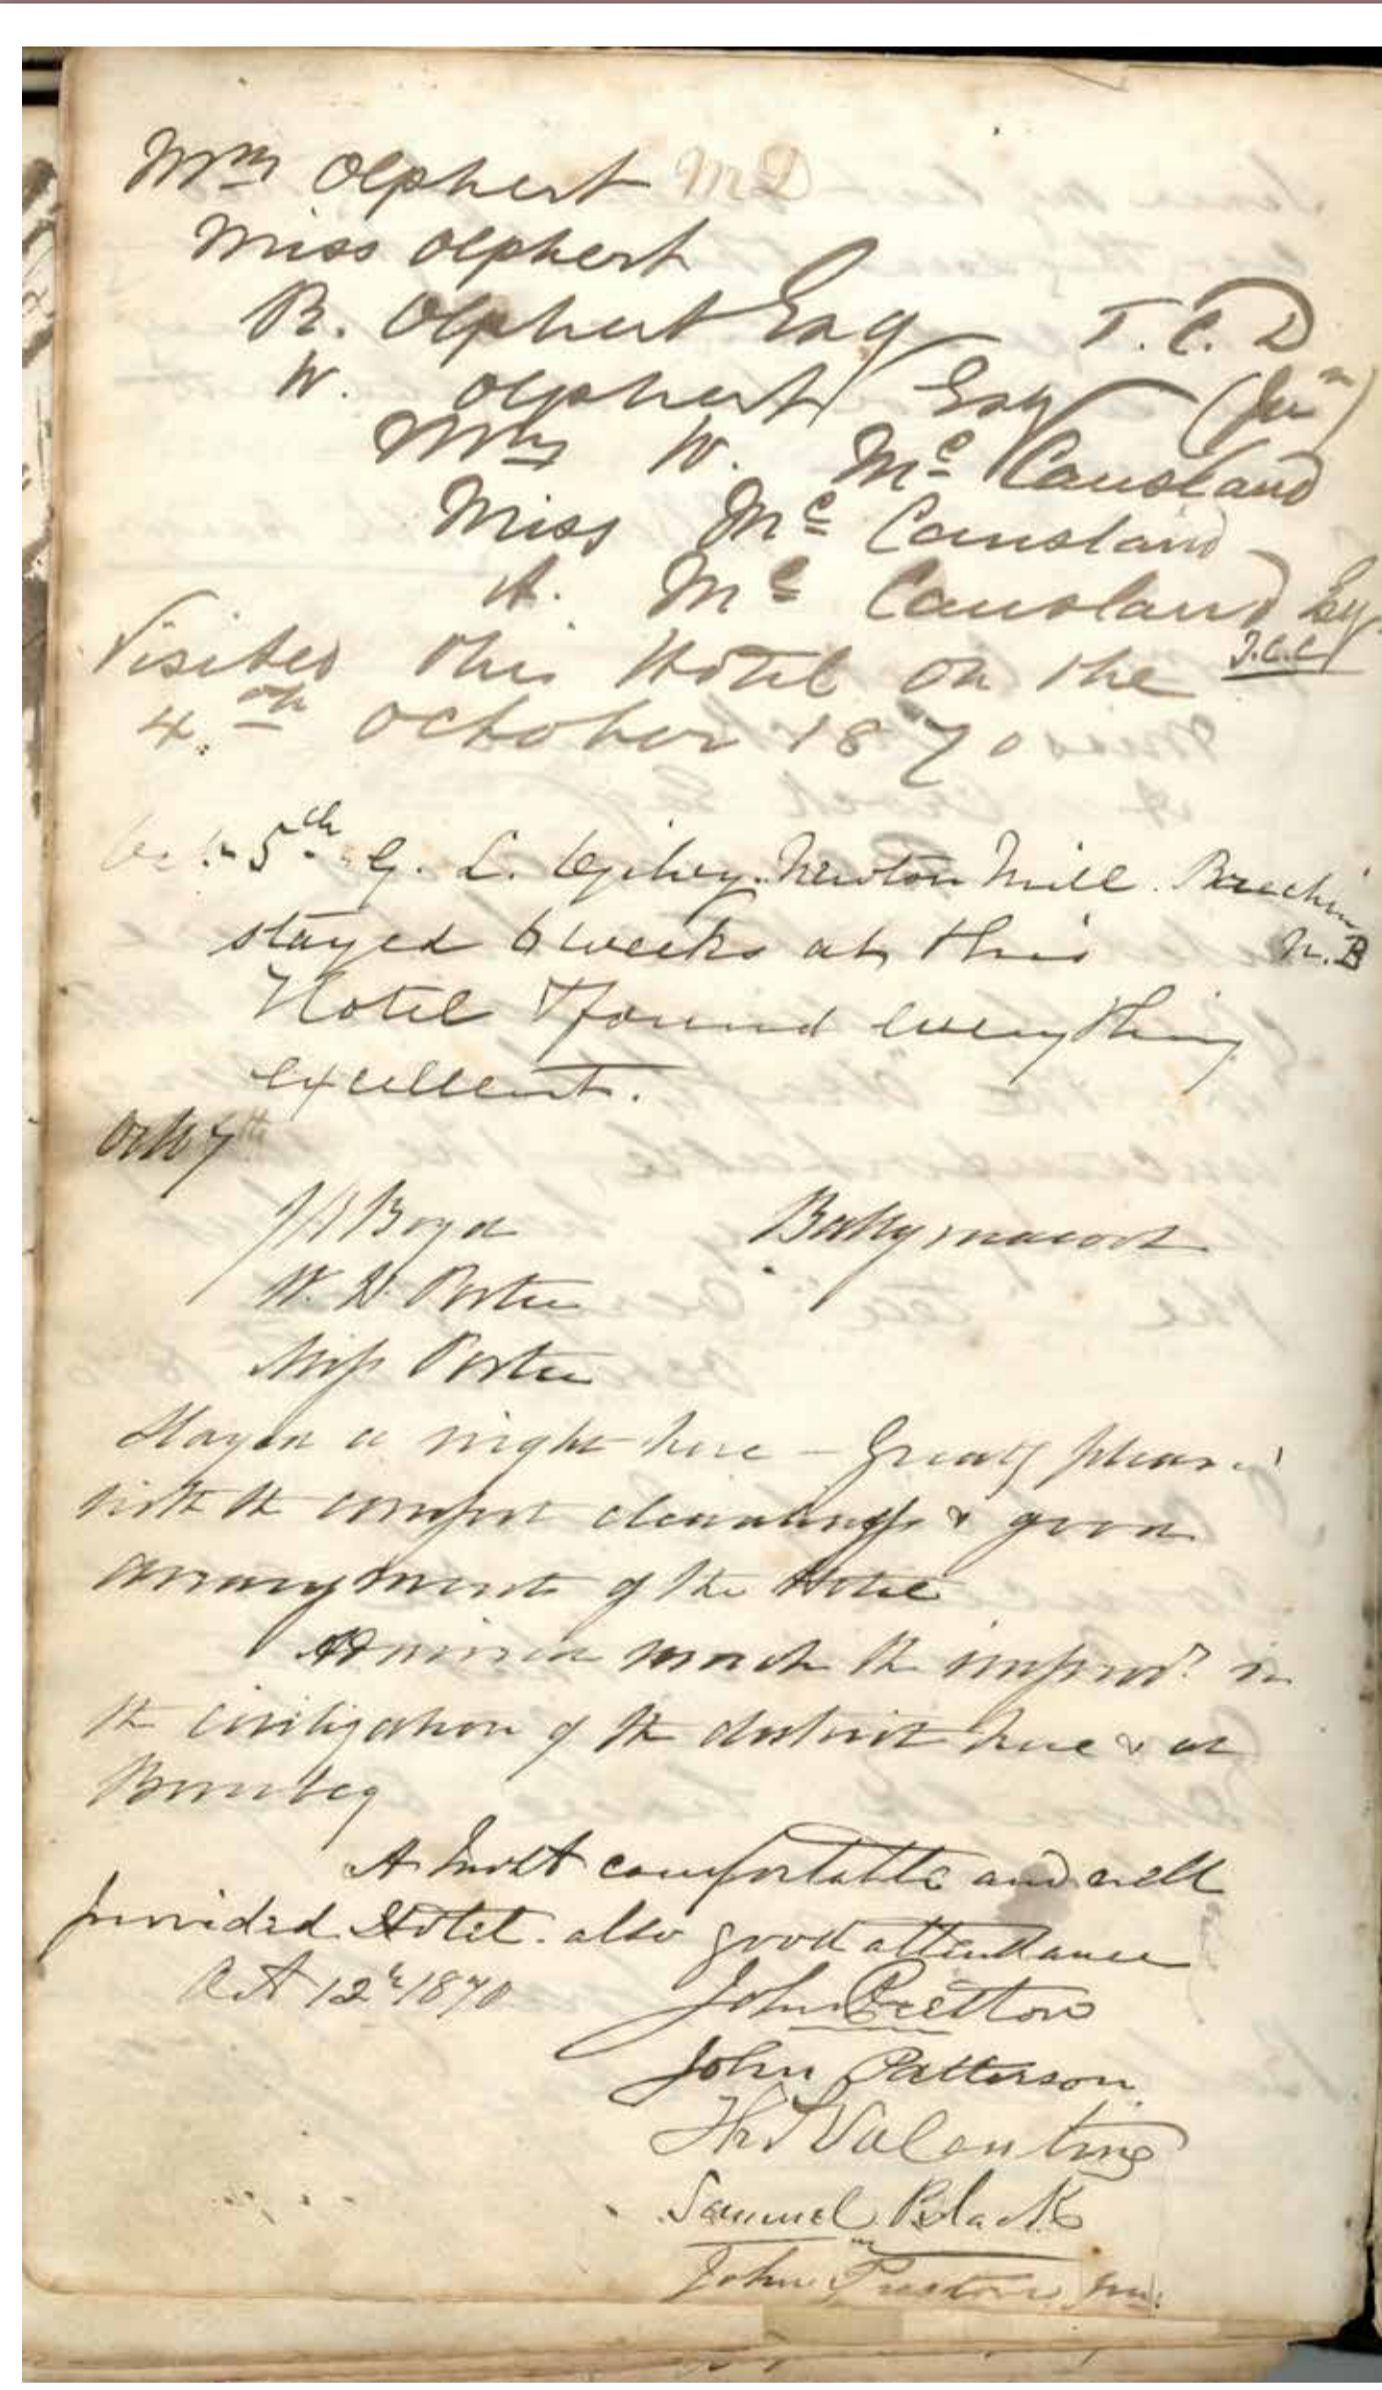 Wm Olphert MD
Miss Olphert
R. Olphert Esq T.C.D
W. Olphert Esq (Jun)
Mrs W. Mc Causland
Miss Mc Causland
A. Mc Causland Esq
T.C.D
Visited this Hotel on the
4.th October 1870
Oct. 5th G. L. Ogilvy. Newton Mill. Brechin
N.B
stayed 6 weeks at this
Hotel & found everything
excellent.
Oct 7th
J Boyd Ballymacool
W. W. Porter
Miss Porter
Stayed a night here - Greatly pleased
with the comfort cleanliness & good
arrangements of the Hotel
Admired much the improvt in
the civilization of the district here & at
Bunbeg
A most comfortable and well
provided Hotel. also good attendance
Oct 12th 1870 John Preston
John Patterson
Valentine
Samuel Black
John Preston Jun: